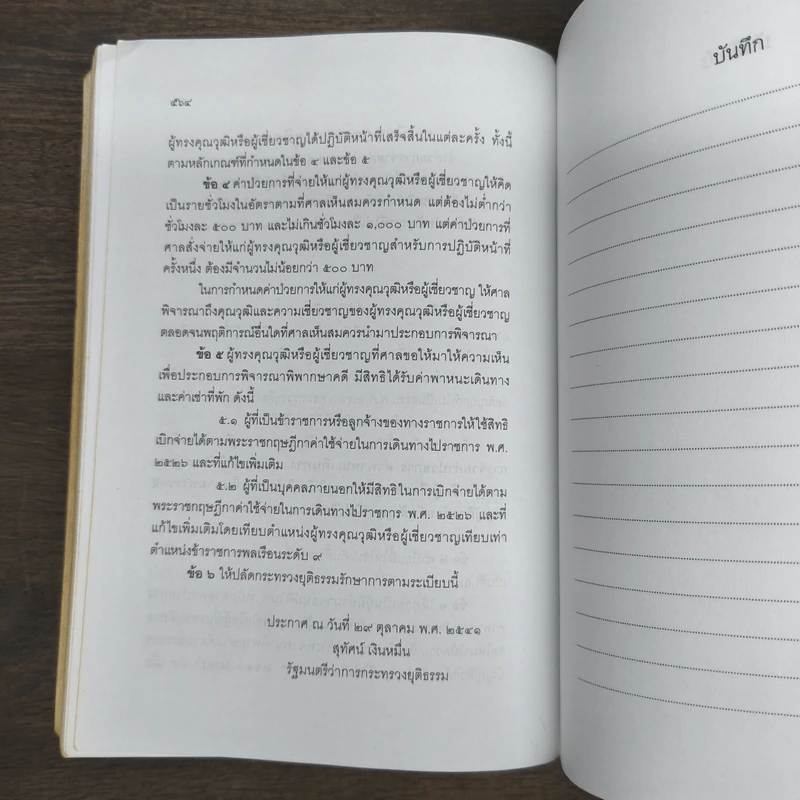 ๕๖๔
ผู้ทรงคุณวุฒิหรือผู้เชี่ยวชาญได้ปฏิบัติหน้าที่เสร็จสิ้นในแต่ละครั้ง ทั้งนี้
ตามหลักเกณฑ์ที่กำหนดในข้อ ๔ และข้อ ๕
ข้อ ๔ ค่าป่วยการที่จ่ายให้แก่ผู้ทรงคุณวุฒิหรือผู้เชี่ยวชาญให้คิด
เป็นรายชั่วโมงในอัตราตามที่ศาลเห็นสมควรกำหนด แต่ต้องไม่ต่ำกว่า
ชั่วโมงละ ๕๐๐ บาท และไม่เกินชั่วโมงละ ๑,๐๐๐ บาท แต่ค่าป่วยการที่
ศาลสั่งจ่ายให้แก่ผู้ทรงคุณวุฒิหรือผู้เชี่ยวชาญสำหรับการปฏิบัติหน้าที่
ครั้งหนึ่ง ต้องมีจำนวนไม่น้อยกว่า ๕๐๐ บาท
ในการกำหนดค่าป่วยการให้แก่ผู้ทรงคุณวุฒิหรือผู้เชี่ยวชาญ ให้ศาล
พิจารณาถึงคุณวุฒิและความเชี่ยวชาญของผู้ทรงคุณวุฒิหรือผู้เชี่ยวชาญ
ตลอดจนพฤติการณ์อื่นใดที่ศาลเห็นสมควรนำมาประกอบการพิจารณา
ข้อ ๕ ผู้ทรงคุณวุฒิหรือผู้เชี่ยวชาญที่ศาลขอให้มาให้ความเห็น
เพื่อประกอบการพิจารณาพิพากษาคดี มีสิทธิได้รับค่าพาหนะเดินทาง
และค่าเช่าที่พัก ดังนี้
๕.๑ ผู้ที่เป็นข้าราชการหรือลูกจ้างของทางราชการให้ใช้สิทธิ
เบิกจ่ายได้ตามพระราชกฤษฎีกาค่าใช้จ่ายในการเดินทางไปราชการ พ.ศ.
๒๕๒๖ และที่แก้ไขเพิ่มเติม
๕.๒ ผู้ที่เป็นบุคคลภายนอกให้มีสิทธิในการเบิกจ่ายได้ตาม
พระราชกฤษฎีกาค่าใช้จ่ายในการเดินทางไปราชการ พ.ศ. ๒๕๒๖ และที่
แก้ไขเพิ่มเติมโดยเทียบตำแหน่งผู้ทรงคุณวุฒิหรือผู้เชี่ยวชาญเทียบเท่า
ตำแหน่งข้าราชการพลเรือนระดับ ๙
ข้อ ๖ ให้ปลัดกระทรวงยุติธรรมรักษาการตามระเบียบนี้
ประกาศ ณ วันที่ ๒๙ ตุลาคม พ.ศ. ๒๕๔๑
สุทัศน์ เงินหมื่น
รัฐมนตรีว่าการกระทรวงยุติธรรม
บันทึก